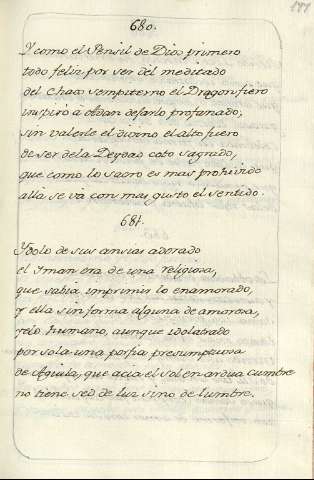 177
680.
Y como el Pensil de Dios primero
todo feliz por ser del meditado
del Chaos sempiterno el Dragon fiero
inspiró à Adan dejarlo profanado;
sin valerle el divino el alto fuero
de ser de la Deydad coto sagrado,
que como lo sacro es mas prohivido
allà se và con mas gusto el sentido.
681.
Ydolo de sus ansias adorado
el Yman era de una religiosa,
que sabia imprimir lo enamorado,
y ella sin forma alguna de amorosa,
yelo humano, aunque idolatrado
por sola una porfia presumptuosa
de Aguila, que acia el sol en ardua cumbre
no tiene sed de luz sino de lumbre.